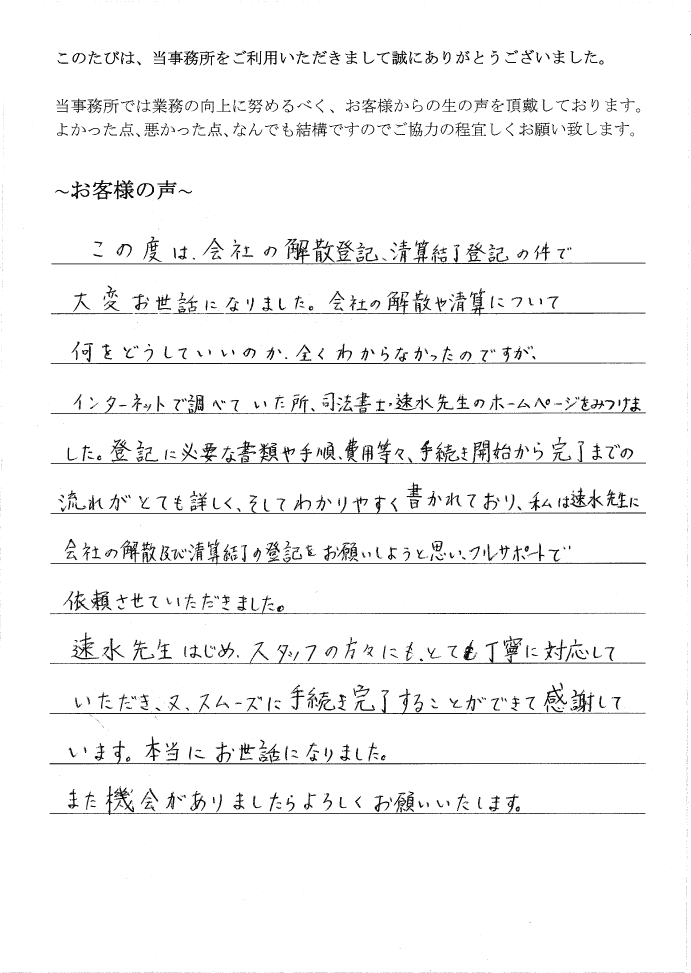 このたびは、当事務所をご利用いただきまして誠にありがとうございました。
当事務所では業務の向上に努めるべく、お客様からの生の声を頂戴しております。
よかった点、悪かった点、なんでも結構ですのでご協力の程宜しくお願い致します。
~お客様の声~
この度は、会社の解散登記、清算結了登記の件で
大変お世話になりました。会社の解散や清算について
何をどうしていいのか、全くわからなかったのですが、
インターネットで調べていた所、司法書士・速水先生のホームページをみつけま
した。登記に必要な書類や手順、費用等々、手続き開始から完了までの
流れがとても詳しく、そしてわかりやすく書かれており、私は速水先生に
会社の解散及び清算結了の登記をお願いしようと思い、フルサポートで
依頼させていただきました。
速水先生はじめ、スタッフの方々にも、とても丁寧に対応して
いただき、又、スムーズに手続き完了することができて感謝して
います。本当にお世話になりました。
また機会がありましたらよろしくお願いいたします。